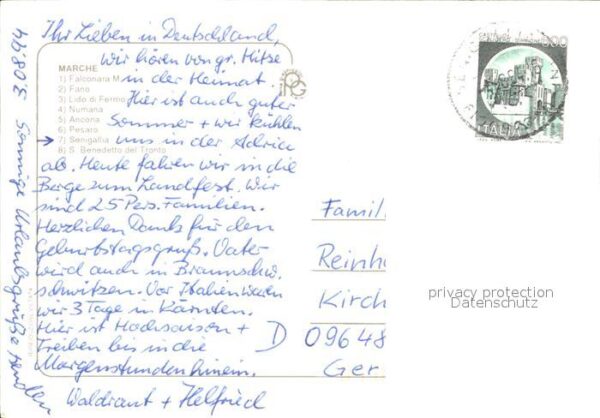 Ihr Lieben in Deutschland,
wir hören von gr. Hitze
in der Heimat
Hier ist auch guter
Sommer + wir kühlen
uns in der Adria
ab. Heute fahren wir in die
Berge zum Landfest. Wir
sind 25 Pers. Familien.
Herzlichen Dank für den
Geburtstagsgruß. Vater
wird auch in Braunschw.
schwitzen. Vor Italien waren
wir 3 Tage in Kärnten.
Hier ist Hochsaison +
Treiben bis in die
Morgenstunden hinein.
Waldraut + Helfried
Sonnige Urlaubsgrüße senden
MARCHE
1) Falconara M
2) Fano
3) Lido di Fermo
4) Numana
5) Ancona
6) Pesaro
7) Senigallia
8) S. Benedetto del Tronto
ITALIA
Famil
Reinh
Kirch
D 09648
Ger
privacy protection
Datenschutz
46803